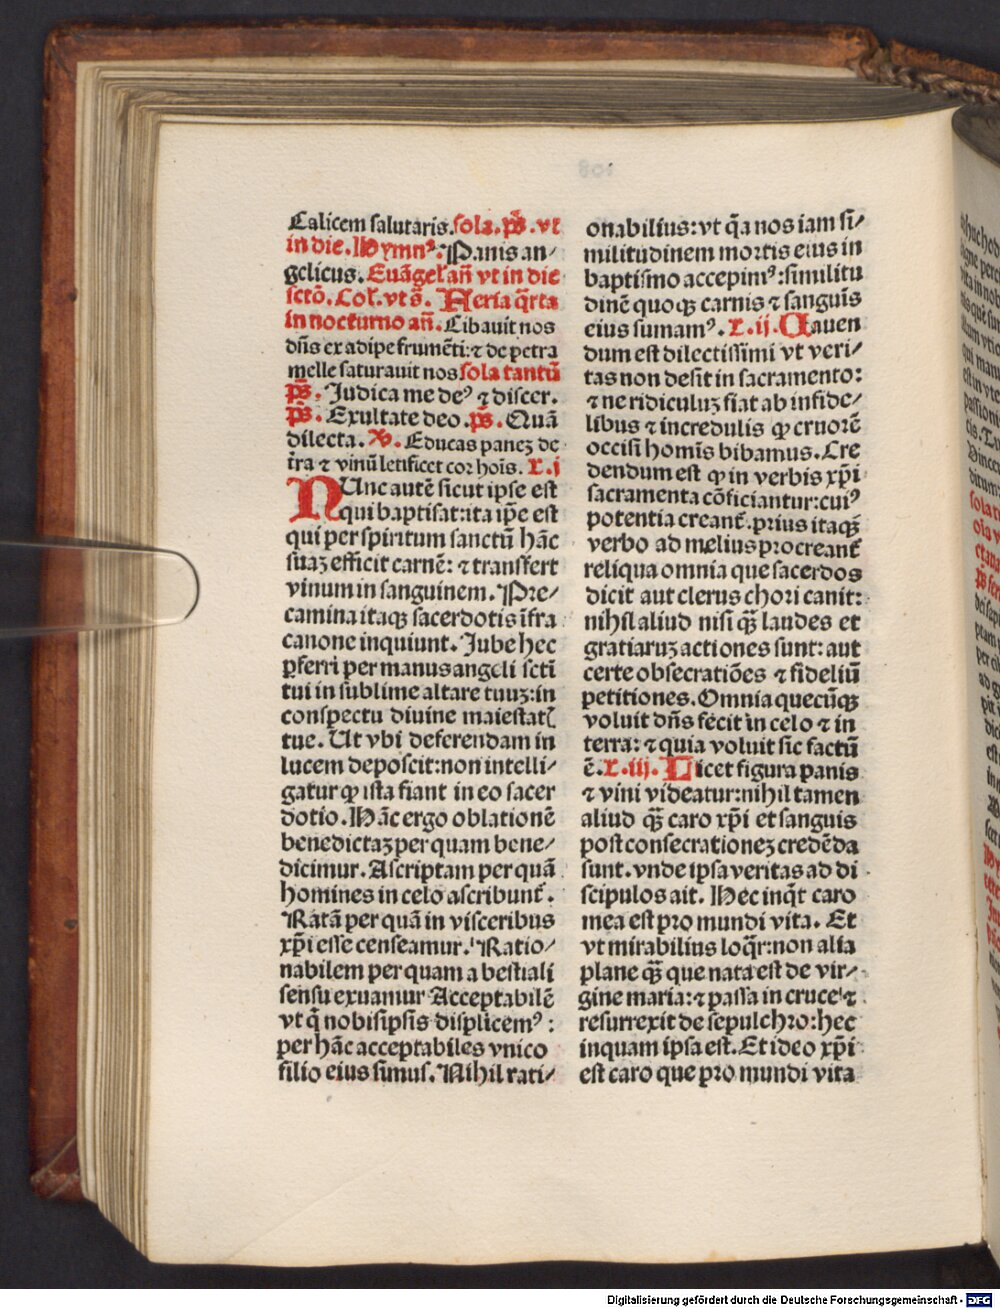 Calicem salutaris. sola. p̄s. vt
in die. Hymnꝰ. Panis an-
gelicus. Euāgel̄ añ vt in die
sctō. Col̄. vt s̄. Feria q̄rta
in nocturno añ. Cibauit nos
dn̄s ex adipe frumēti: ⁊ de petra
melle saturauit nos sola tantū
p̄s. Judica me deꝰ ⁊ discer.
p̄s. Exultate deo. p̄s. Quā
dilecta. ℣. Educas paneꝫ de
t̄ra ⁊ vinū letificet cor hoīs. r. j
NUnc autē sicut ipse est
qui baptisat: ita ip̄e est
qui per spiritum sanctū hāc
suaꝫ efficit carnē: ⁊ transfert
vinum in sanguinem. Pre-
camina itaqꝫ sacerdotis īfra
canone inquiunt. Jube hec
ꝑferri per manus angeli scti
tui in sublime altare tuuꝫ: in
conspectu diuine maiestatꝭ
tue. Ut vbi deferendam in
lucem deposcit: non intelli-
gatur ꝙ ista fiant in eo sacer
dotio. Hāc ergo oblationē
benedictaꝫ per quam bene-
dicimur. Ascriptam per quā
homines in celo ascribunt̄.
Ratā per quā in visceribus
xp̄i esse censeamur. Ratio-
nabilem per quam a bestiali
sensu exuamur Acceptabilē
vt q̄ nobisipsis displicemꝰ:
per hāc acceptabiles vnico
filio eius simus. Nihil rati-
onabilius: vt q̄a nos iam si-
militudinem mortis eius in
baptismo accepimꝰ: similitu
dinē quoqꝫ carnis ⁊ sanguīs
eius sumamꝰ. r. ij. Cauen
dum est dilectissimi vt veri-
tas non desit in sacramento:
⁊ ne ridiculuꝫ fiat ab infide-
libus ⁊ incredulis ꝙ cruorē
occisi homīs bibamus. Cre
dendum est ꝙ in verbis xp̄i
sacramenta cōficiantur: cuiꝰ
potentia creant̄. prius itaqꝫ
verbo ad melius procreant̄
reliqua omnia que sacerdos
dicit aut clerus chori canit:
nihil aliud nisi qꝫ̄ laudes et
gratiaruꝫ actiones sunt: aut
certe obsecratiōes ⁊ fideliū
petitiones. Omnia quecūqꝫ
voluit dn̄s fecit in celo ⁊ in
terra: ⁊ quia voluit sic factū
ē. r. iij. Licet figura panis
⁊ vini videatur: nihil tamen
aliud qꝫ̄ caro xp̄i et sanguis
post consecrationeꝫ credēda
sunt. vnde ipsa veritas ad di
scipulos ait. Hec inqͥt caro
mea est pro mundi vita. Et
vt mirabilius loq̄r: non alia
plane qꝫ̄ que nata est de vir-
gine maria: ⁊ passa in cruce ⁊
resurrexit de sepulchro: hec
inquam ipsa est. Et ideo xp̄i
est caro que pro mundi vita
Digitalisierung gefördert durch die Deutsche Forschungsgemeinschaft - DFG